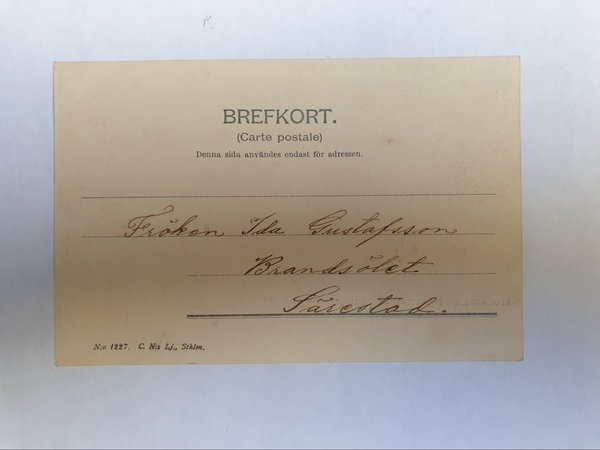 BREFKORT.
(Carte postale)
Denna sida användes endast för adressen.
Fröken Ida Gustafsson
Brandsölet
Särestad.
N:o 1227. C. Nis Lj., Sthlm.